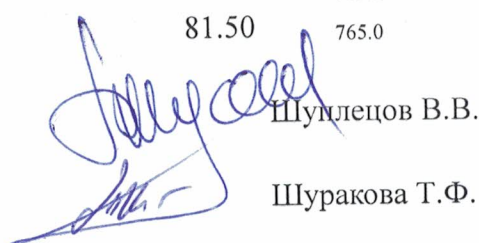 81.50 765.0
Шуплецов В.В.
Шуракова Т.Ф.